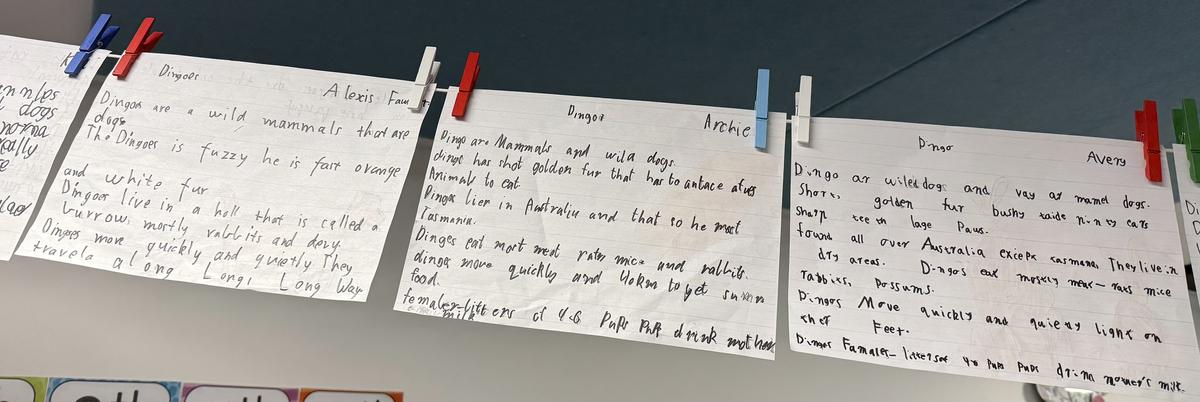 K
nnles
dogs
norma
eally
Dingoes
Alexis Fau
Dingoes are a wild mammals that are
dogs
The Dingoes is fuzzy he is fast orange
and white fur
Dingoes live in a holl that is called a
burrow, mostly rabbits and
Dingoes move quickly and quietly They
travela along Long, Long Way
Dingos
Archie
Dingo are Mammals and wild dogs.
dingo has shot golden fur that has to
Animals to eat.
Dingos in Australia and that so he most
Tasmania.
Dinges eat most meat rats mice and rabbits.
dinges move quickly and 40km to get
food.
females-litt ers of 4-6 Pups Pups drink mothers
milk
Dingo
Avery
Dingo ar wiled dogs and vay ar mamel dogs.
Short, golden fur bushy ears
Sharp teeth lage Paws.
found all over Australia except They live in
dry areas. Dingos eat mostly meat- rats mice
rabbits, possums.
Dingos Move quickly and light on
ther Feet.
Dingos Females- pups pups mother's milk.